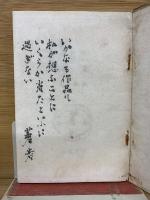 いかなる作品も
私の想ふことに
いくらか足たといふに
過ぎない
著者